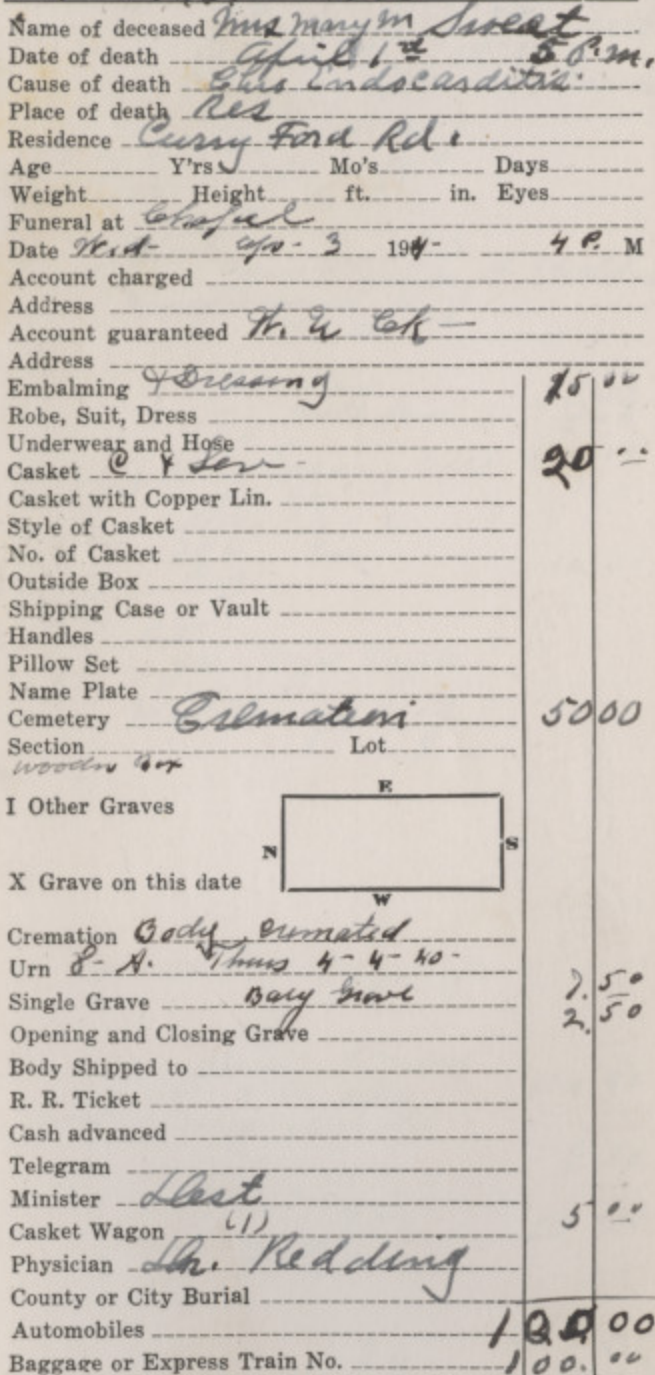 Name of deceased Mrs Mary M Sweat
Date of death April 1st 5 P.m.
Cause of death Endocarditis
Place of death Res
Residence Curry Ford Rd.
Age Y'rs Mo's Days
Weight Height ft. in. Eyes
Funeral at Chapel
Date Wed- Apr- 3 194- 4 P. M
Account charged
Address
Account guaranteed
Address
Embalming & Dressing 15 00
Robe, Suit, Dress
Underwear and Hose
Casket C & Ser 20 --
Casket with Copper Lin.
Style of Casket
No. of Casket
Outside Box
Shipping Case or Vault
Handles
Pillow Set
Name Plate
Cemetery Cremation 50 00
Section Lot
wooden Box
E
I Other Graves
N S
X Grave on this date
W
Cremation Body cremated
Urn 8- A. Thurs 4-4-40-
Single Grave 50
Opening and Closing Grave 2. 50
Body Shipped to
R. R. Ticket
Cash advanced
Telegram
Minister 5 00
Casket Wagon (1)
Physician Dr. Redding
County or City Burial
Automobiles 00
Baggage or Express Train No. 100. 00